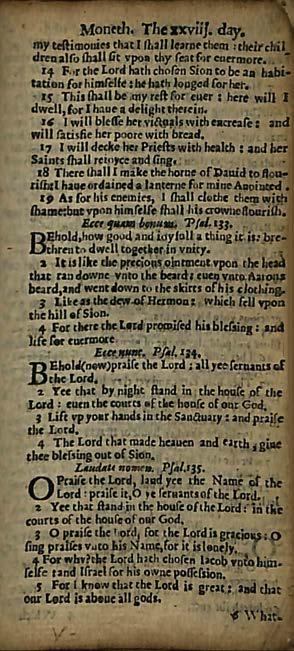 Moneth. The xxviij. day.
my testimonies that I shall learne them : their chil-
dren also shall sit vpon thy seat for euermore.
14 For the Lord hath chosen Sion to be an habi-
tation for himselfe : he hath longed for her.
15 This shall be my rest for euer : here will I
dwell, for I haue a delight therein.
16 I will blesse her victuals with encrease : and
will satisfie her poore with bread.
17 I will decke her Priests with health : and her
Saints shall reioyce and sing.
18 There shall I make the horne of Dauid to flou-
rish: I haue ordained a lanterne for mine Anointed.
19 As for his enemies, I shall clothe them with
shame: but vpon himselfe shall his crowne flourish.
Ecce quam bonum. Psal. 133.
BEhold, how good and ioyfull a thing it is: bre-
thren to dwell together in vnity.
2 It is like the precious ointment vpon the head
that ran downe vnto the beard : euen vnto Aarons
beard, and went down to the skirts of his clothing.
3 Like as the dew of Hermon : which fell vpon
the hill of Sion.
4 For there the Lord promised his blessing : and
life for euermore
Ecce nunc. Psal. 134.
BEhold (now) praise the Lord : all yee seruants of
the Lord,
2 Yee that by night stand in the house of the
Lord : euen the courts of the house of our God.
3 Lift vp your hands in the Sanctuary : and praise
the Lord.
4 The Lord that made heauen and earth, giue
thee blessing out of Sion.
Laudate nomen. Psal. 135.
O Praise the Lord, laud yee the Name of the
Lord : praise it, O ye seruants of the Lord.
2 Yee that stand in the house of the Lord : in the
courts of the house of our God.
3 O praise the Lord, for the Lord is gracious : O
sing praises vnto his Name, for it is louely.
4 For why? the Lord hath chosen Iacob vnto him-
selfe : and Israel for his owne possession.
5 For I know that the Lord is great : and that
our Lord is aboue all gods.
6 What-